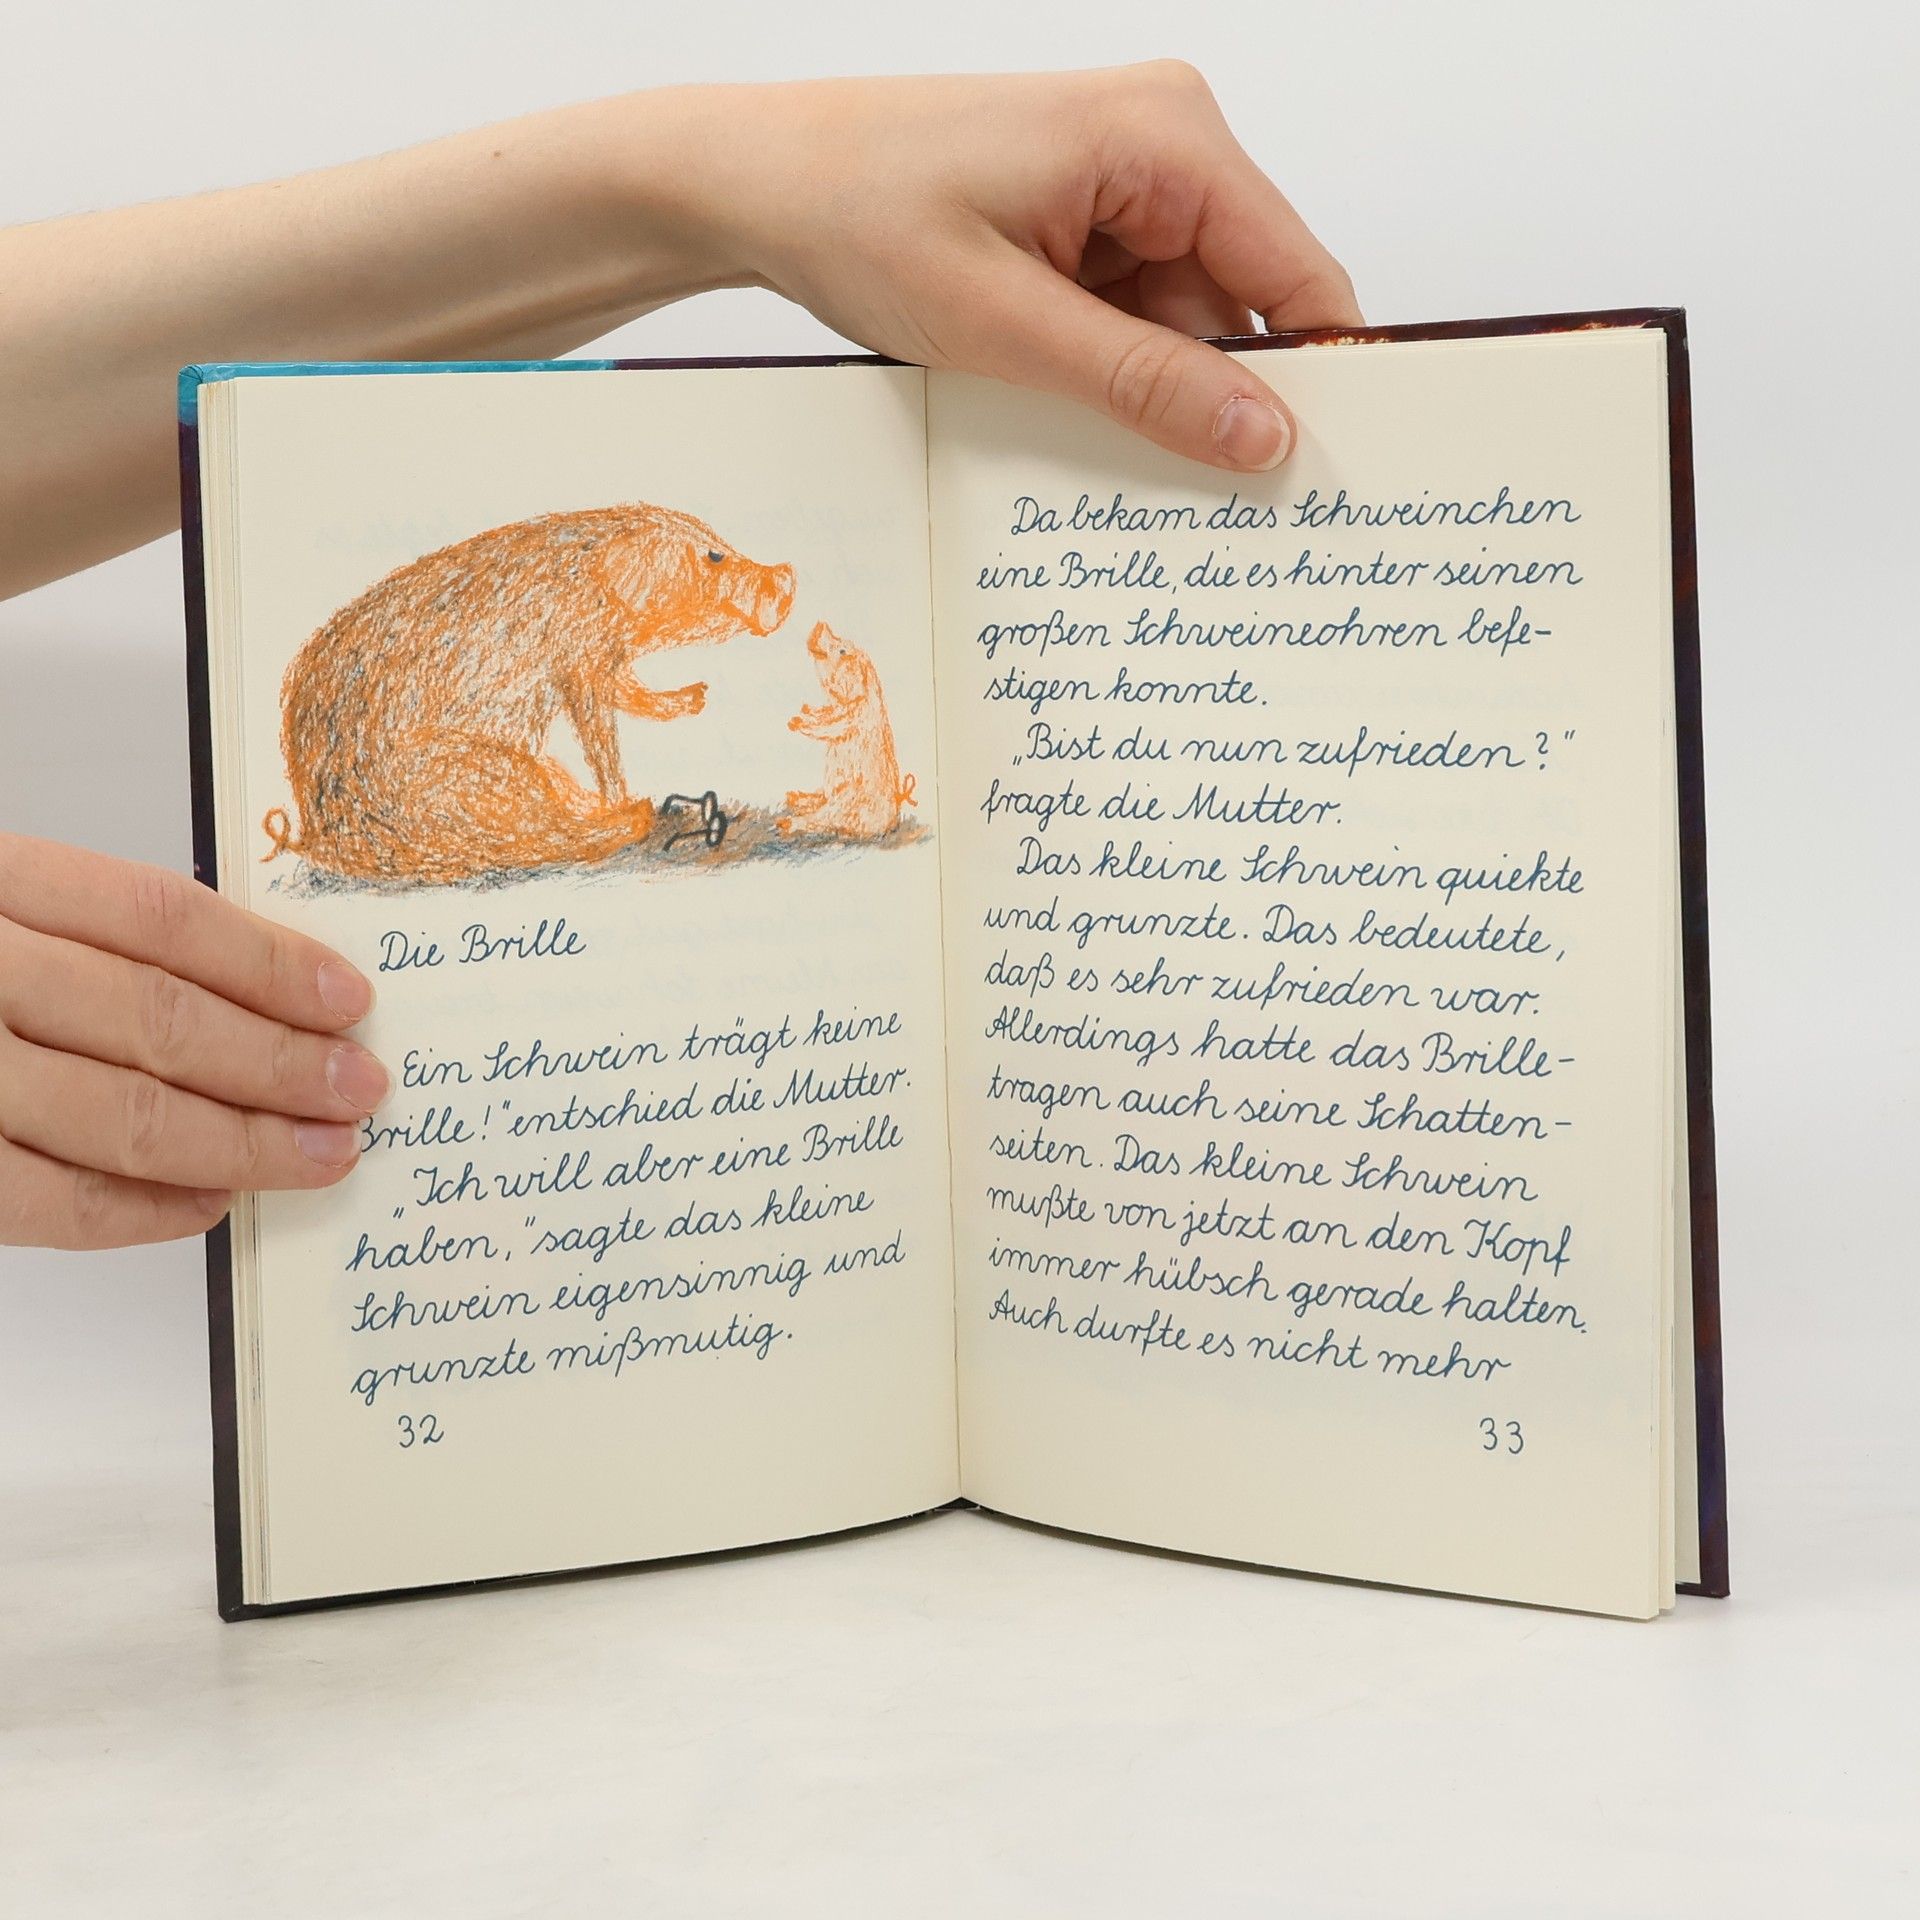 Die Brille
Ein Schwein trägt keine
Brille!" entschied die Mutter.
„Ich will aber eine Brille
haben," sagte das kleine
Schwein eigensinnig und
grunzte mißmutig.
32
Da bekam das Schweinchen
eine Brille, die es hinter seinen
großen Schweineohren befe-
stigen konnte.
„Bist du nun zufrieden?"
fragte die Mutter.
Das kleine Schwein quiekte
und grunzte. Das bedeutete,
daß es sehr zufrieden war.
Allerdings hatte das Brille-
tragen auch seine Schatten-
seiten. Das kleine Schwein
mußte von jetzt an den Kopf
immer hübsch gerade halten.
Auch durfte es nicht mehr
33